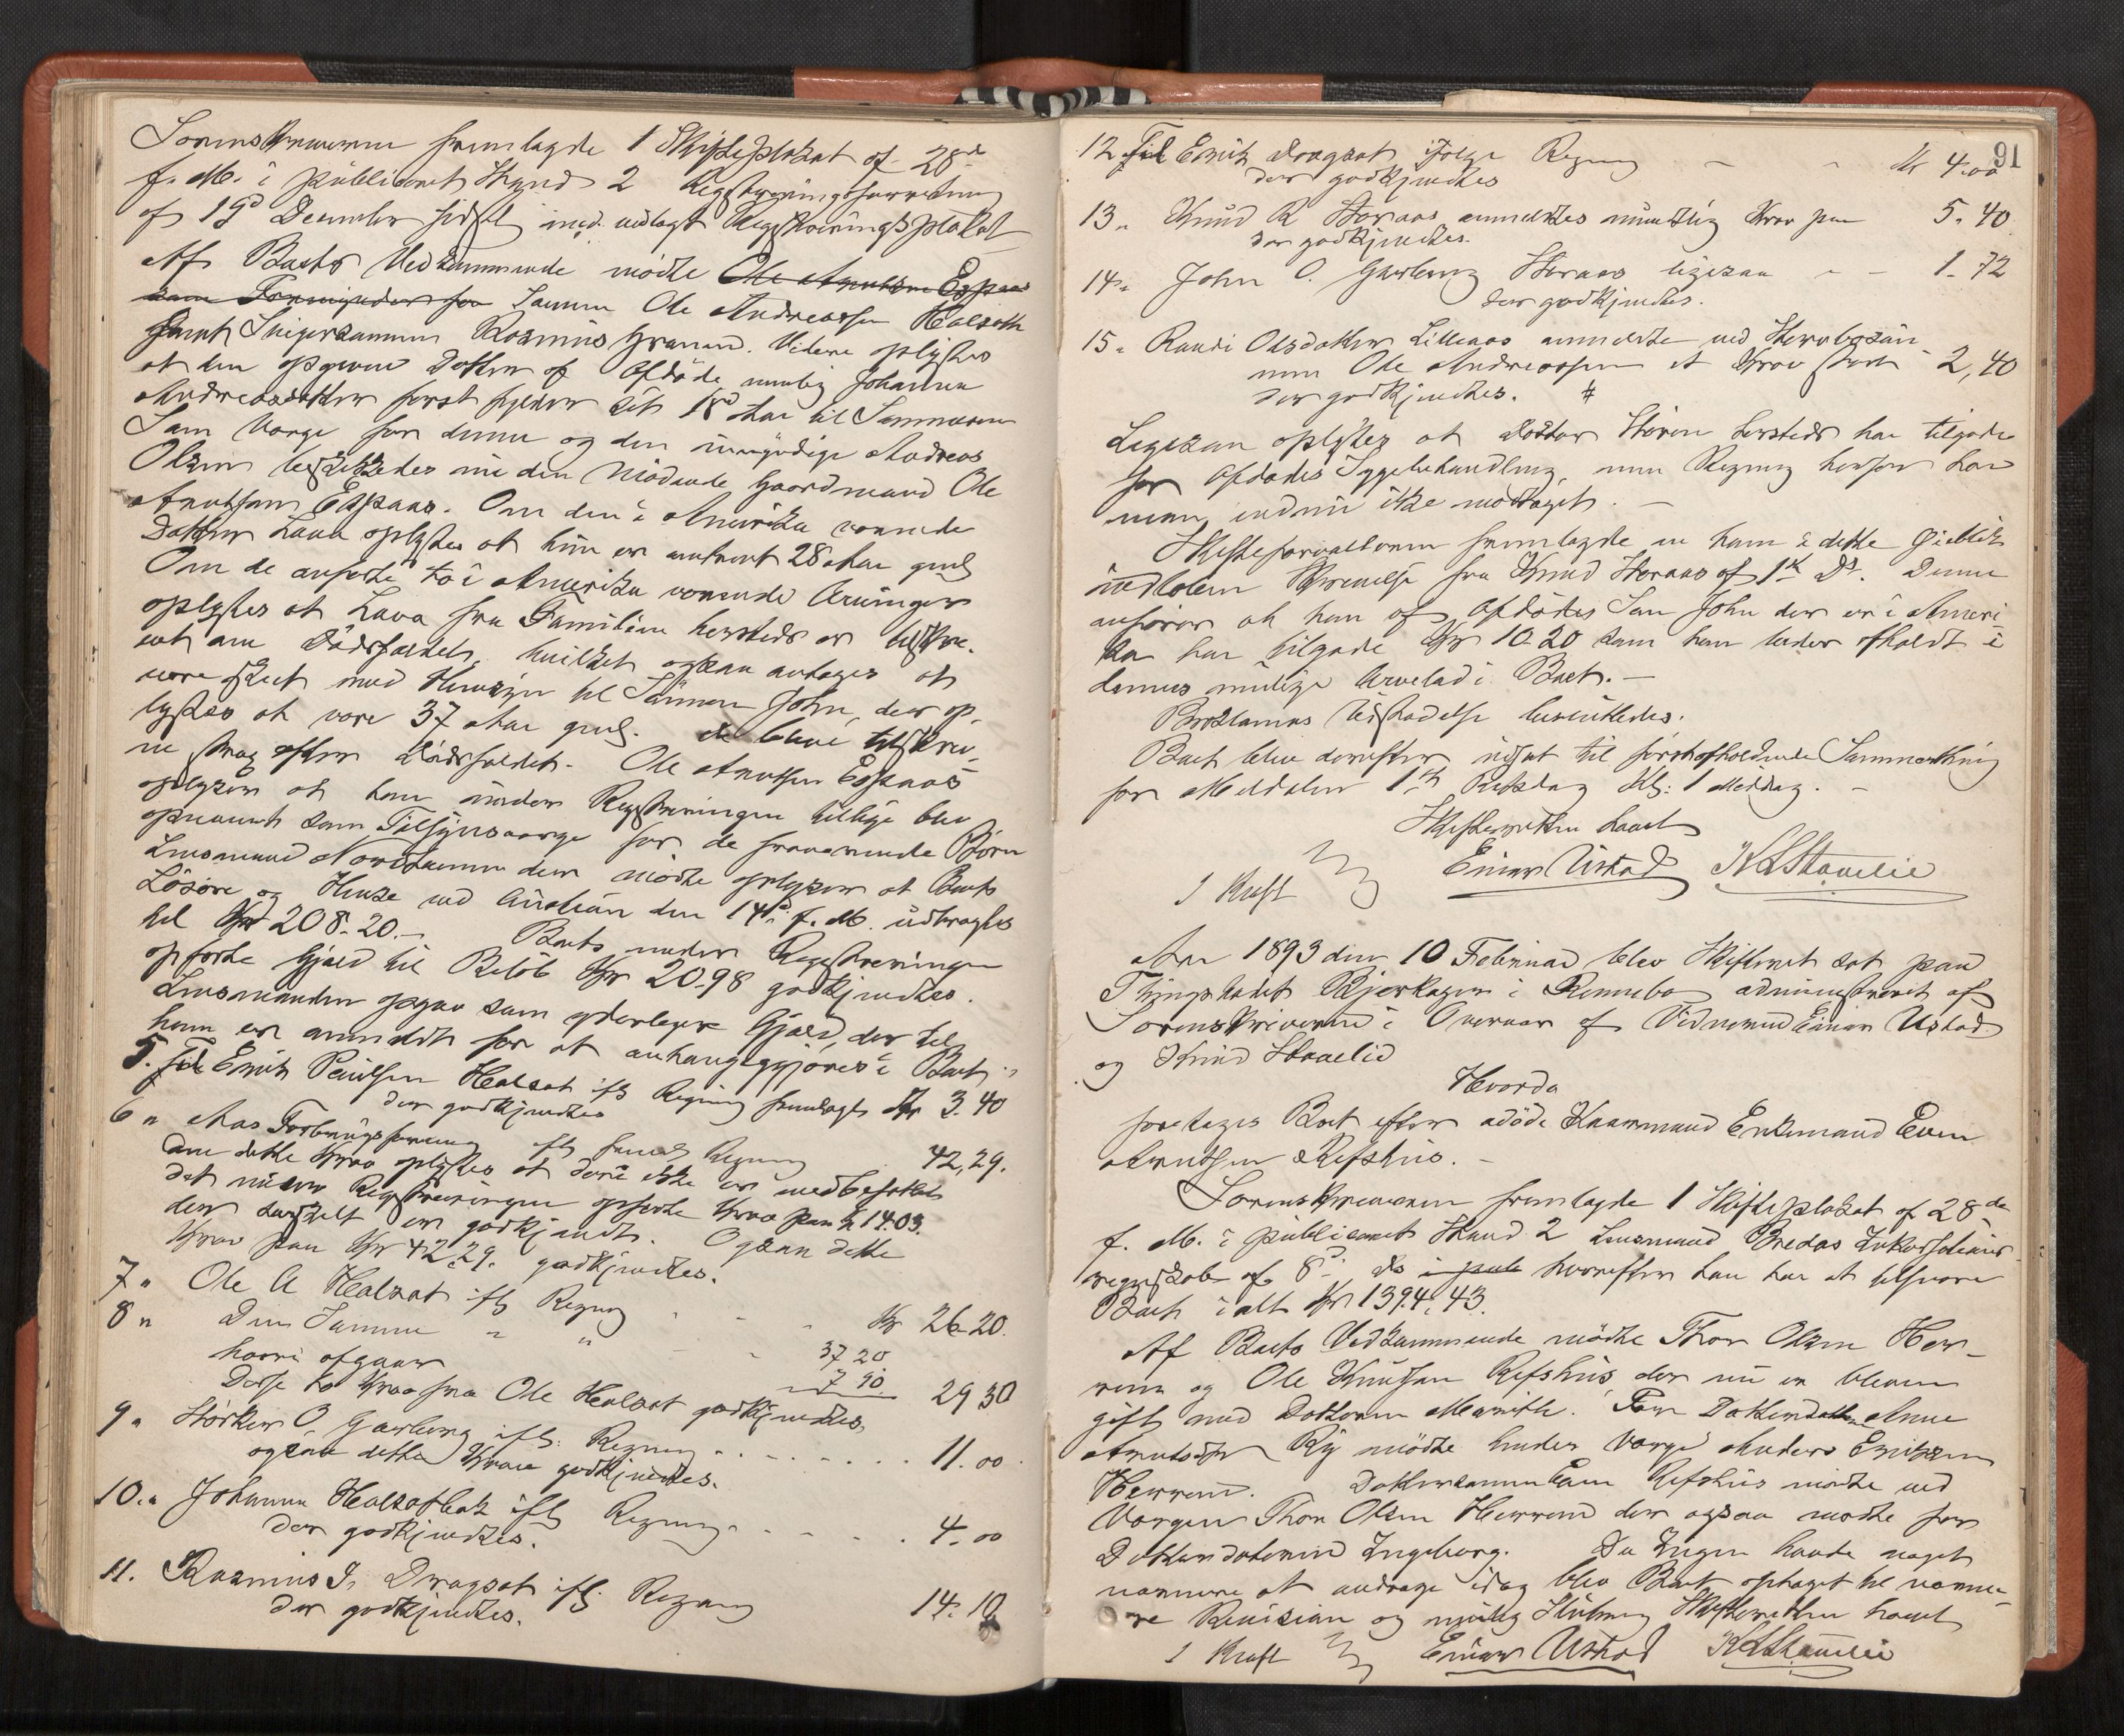 Sorenskriveren fremlagde 1 Skifteplakat af 28d
f. M. i publiceret Stand 2 Registreringsforretning
af 19d December sidstl med vedlagt Registreringsplakat
Af Boets Vedkommende mødte Ole Arnutsen Espaas
som Formynder for Sønnen Ole Andreassen Halsat
samt Svigersønnen Rasmus Granmo. Videre oplystes
at den opgivne Datter af Afdøde nemlig Johanna
Andreasdatter først fylder sit 18d Aar til Sommeren
Som Værge for denne og den umyndige Andreas
Olsen beskikkedes nu den mødende Gaardmand Ole
Arnutsen Espaas. Om den i Amerika værende
Datter Lava oplystes at hun er omtrent 28 Aar gml
Om de anførte to i Amerika værende Arvinger
oplystes at Lava fra Familien hersteds er tilskre-
vet om Dødsfaldet, hvilket ogsaa antages at
være skeet med Hensyn til Sønnen John, der op-
lystes at være 37 Aar gml. de bleve tilskrev-
ne strax efter Dødsfaldet. Ole Arnutsen Espaas
oplyser at han under Registreringen tillige blev
opnævnt som Tilsynsværge for de fraværende Børn
Lensmand der mødte oplyser at Boets
Løsøre og Huse ved Auktion den 14d f. M. udbragtes
til Kr 208.20.- Boets under Registreringen
opførte Gjæld til Beløb Kr 20.98 godkjendtes.
Lensmanden opgav som yderligere Gjæld, der til
ham er anmeldt for at anhængiggjøres i Boet:
5. Til Erik Paulsen Halsat ifl Regning fremlagt Kr 3.40
der godkjendtes
6 " Aas Forbrugsforening ifl freml Regning 42,29.
Om dette Krav oplystes at deri ikke er medbefattet
det under Registreringen opførte Krav paa K 14.03.
der særskilt er godkjendt. Ogsaa dette
Krav paa Kr 42.29. godkjendtes.
7 " Ole A Halsat ifl Regning - - - Kr 26-20.
8 " Den Samme " " - 37 20.
hvori afgaar 7 90 29 30
Disse to Krav fra Ole Halsat godkjendtes,
9 " Størker O. Garberg ifl: Regning . . . . . . . 11.00
ogsaa dette Krav godkjendtes.
10. " Johanna ifl Regning . . . . . 4.00
der godkjendtes.
11. Rasmus J. Dragsat ifl. Regning 14.10
der godkjendtes.
91
12 Til Erik Dragsat ifølge Regning - - Kr 4.00
der godkjendtes
13 " Knud R Storaas anmeldtes mundtlig Krav paa 5.40
der godkjendtes.
14 " John O. Garberg Storaas ligesaa - - 1.72
der godkjendtes.
15 " Randi Olsdatter Lilleaas anmeldte ved
men Ole Andreassen et Krav stort - 2,40
der godkjendtes. #
Ligesaa oplystes at Doktor hersteds har tilgode
for Afdødes Sygebehandling, men Regning herfor har
man endnu ikke modtaget. -
Skifteforvalteren fremlagde en ham i dette Øieblik
indløben Skrivelse fra Knud Storaas af 1st Ds. Denne
anfører at han af Afdødes Søn John der er i Ameri
ka har tilgode Kr 10.20 som han beder afholdt i
dennes mulige Arvelod i Boet. -
Proklamas Udstedelse besluttedes.
Boet blev derefter udsat til førstafholdende Sammenthing
for Meldalen 1st Retsdag Kl: 1 Middag. -
Skifteretten hævet
J Kraft Einar Ustad K L Stavelie
Aar 1893 den 10 Februar blev Skifteret sat paa
Thingstedet Bjerkager i Rennebo administreret af
Sorenskriveren i Overvær af Vidnerne Einar Ustad
og Knud Stavelie
Hvorda
foretages Boet efter afdøde Kaarmand Enkemand Even
Arnutsen Refshus. -
Sorenskriveren fremlagde 1 Skifteplakat af 28de
f. M. i publiceret Stand 2 Lensmand Bredes Inkassations-
regnskab af 8d ds i publ hvorefter han har at tilsvare
Boet i alt Kr 1394.43.
Af Boets Vedkommende mødte Thor Olsen Her-
rem og Ole Knutsen Refshus der nu er bleven
gift med Datteren Marith. For Datterdatter Anne
Arnutsdtr Ry mødte hendes Værge Anders Eriksen
Herrem. Dattersønnen Even Refshus mødte med
Værgen Thor Olsen Herrem der ogsaa mødte for
Datterdatteren Ingeborg. Da Ingen havde noget
nærmere at andrage idag blev Boet optaget til nærme-
re Revision og mulig Slutning Skifteretten hævet
J Kraft Einar Ustad K L Stavelie